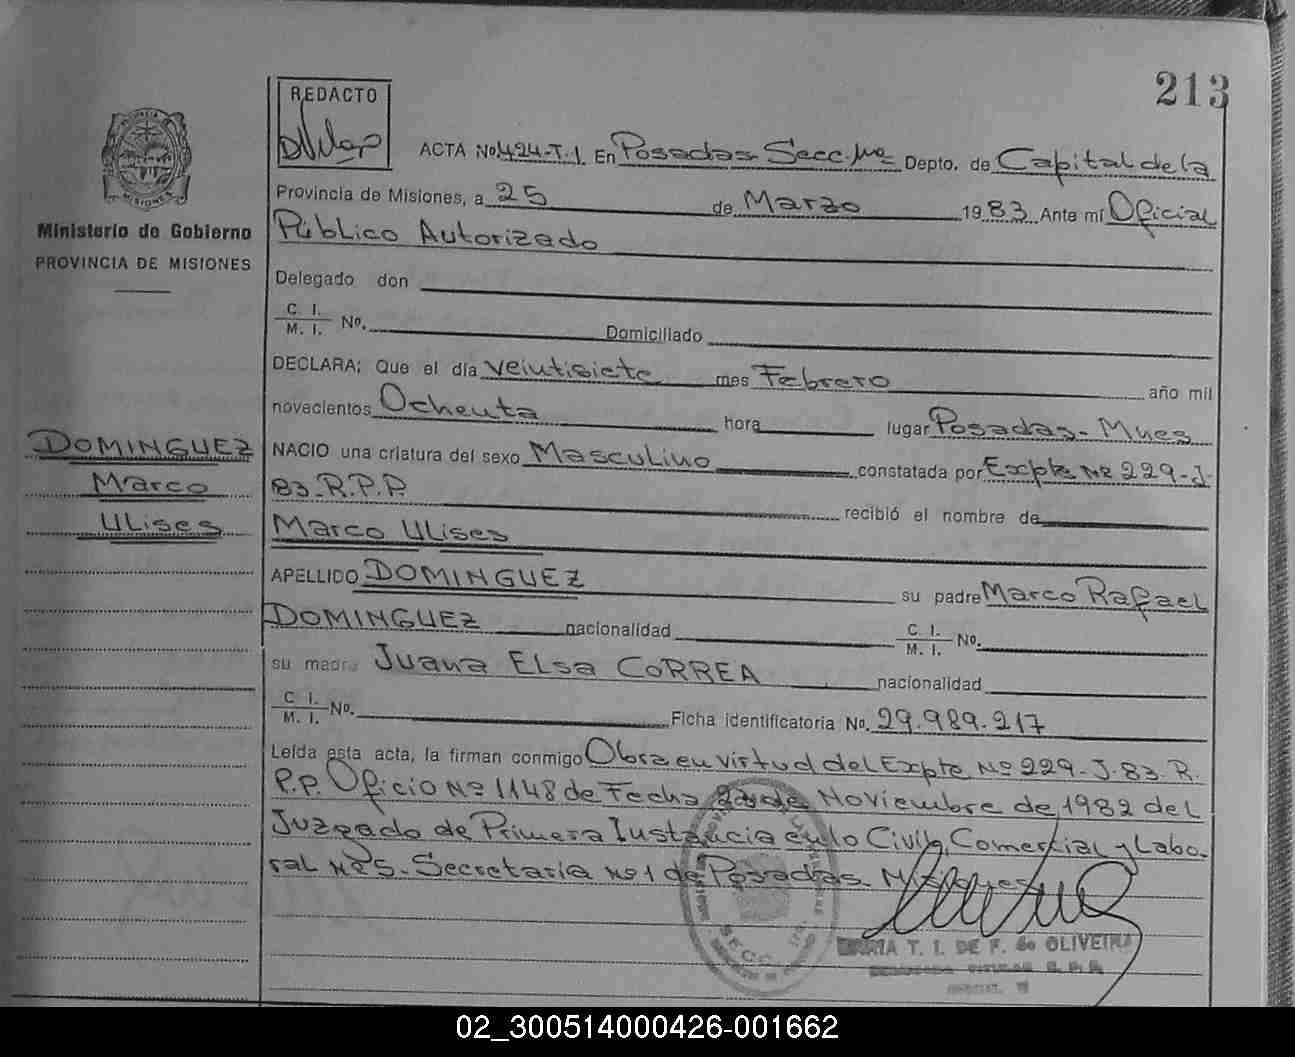 213
REDACTO
ACTA No. 424-T.1. En Posadas Secc. 1ra Depto. de Capital de la
Provincia de Misiones, a 25 de Marzo 1983 Ante mí Oficial
Público Autorizado
Delegado don
C. I.
M. I. No. Domiciliado
DECLARA: Que el día veintisiete mes Febrero año mil
novecientos Ochenta hora lugar Posadas - Mnes
NACIO una criatura del sexo Masculino constatada por Expte Nº 229-J-
83-R.P.P. recibió el nombre de
Marco Ulises
APELLIDO DOMINGUEZ su padre Marco Rafael
DOMINGUEZ nacionalidad C. I.
M. I. No.
su madre Juana Elsa CORREA nacionalidad
C. I.
M. I. No. Ficha identificatoria No. 29.989.217
Leída esta acta, la firman conmigo Obra en virtud del Expte Nº 229-J-83-R.
P.P. Oficio Nº 1148 de Fecha de Noviembre de 1982 del
Juzgado de Primera Instancia en lo Civil, Comercial y Labo-
ral Nº5. Secretaria Nº1 de Posadas
MARIA T. I. DE F. de OLIVEIRA
SECC.
PROVINCIA DE
MISIONES
Ministerio de Gobierno
PROVINCIA DE MISIONES
DOMINGUEZ
Marco
Ulises
02_300514000426-001662